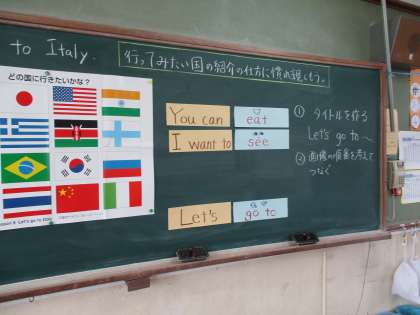 to Italy.
行ってみたい国の紹介の仕方に慣れ親しもう。
どの国に行きたいかな？
You can eat
I want to see
Let's go to
① タイトルを作る
Let's go to ～
② 画像の順番を考えて
つなぐ